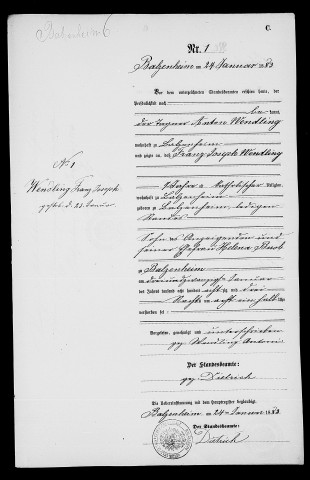 Balzenheim 6
C.
Nr. 1
Balzenheim am 24 Januar 1883
Vor dem unterzeichneten Standesbeamten erschien heute, der
Persönlichkeit nach
kannt,
der Tagner Anton Wendling
wohnhaft in Balzenheim
und zeigte an, daß Franz Joseph Wendling
№ 1
Wendling Franz Joseph
gestorb. d. 23. Januar
Jahre alt, katholischer Religion,
wohnhaft in Balzenheim
geboren zu Balzenheim, ledigen
Standes
Sohn des Anzeigenden und
seiner Ehefrau Helena
zu Balzenheim
am dreiundzwanzigsten Januar
des Jahres tausend acht hundert achtzig und drei
Nachts um acht ein halb Uhr
verstorben sei
Vorgelesen, genehmigt und unterschrieben
gez. Wendling Antoni
Der Standesbeamte:
gez. Dietrich
Die Uebereinstimmung mit dem Hauptregister beglaubigt
Balzenheim am 24 Januar 1883
Der Standesbeamte:
Dietrich